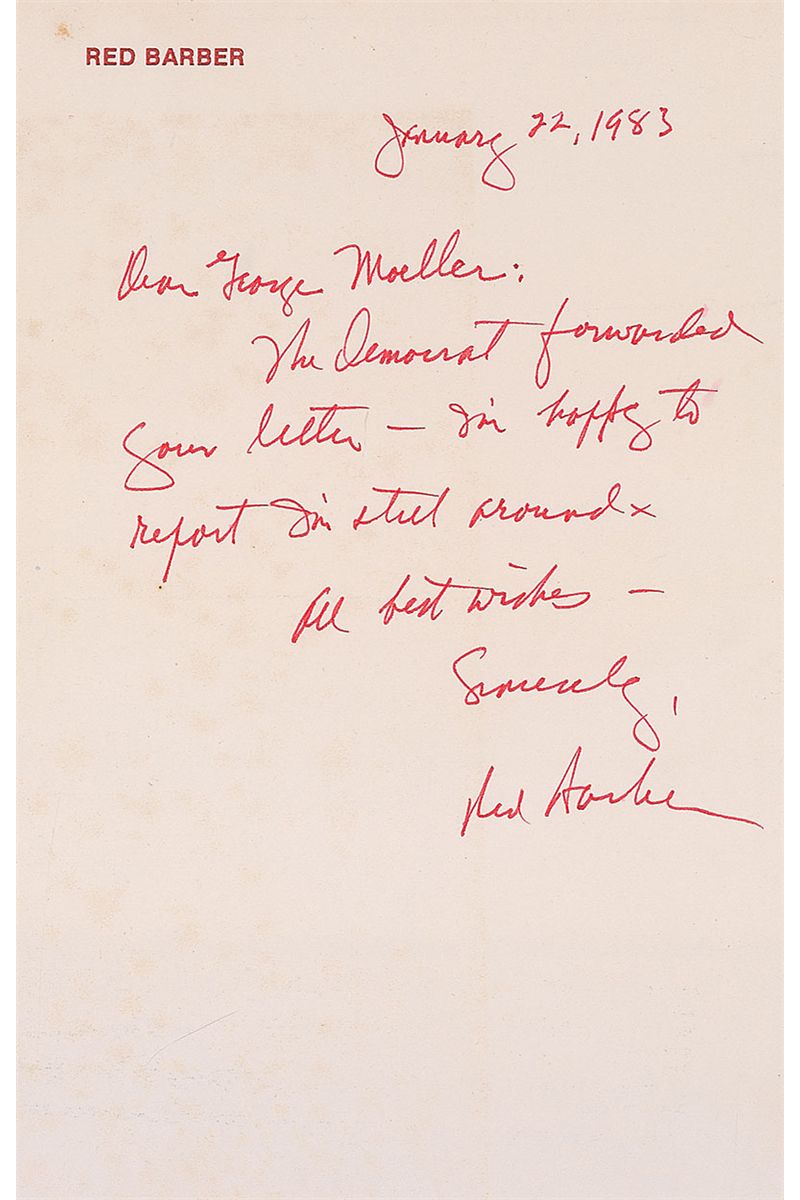 RED BARBER
January 22, 1983
Dear George Moeller:
The Democrat forwarded
your letter — I'm happy to
report I'm still around x
All best wishes —
Sincerely,
Red Barber